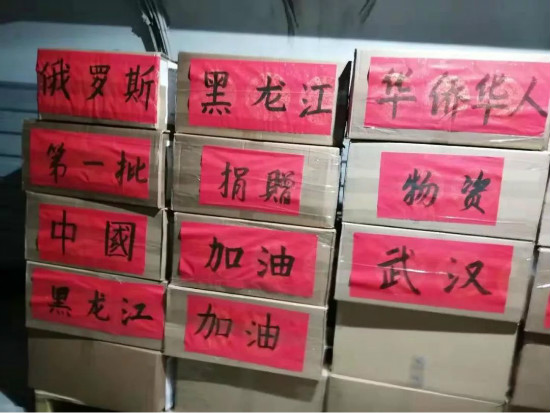 俄罗斯 黑龙江 华侨华人
第一批 捐赠 物资
中國 加油 武汉
黑龙江 加油